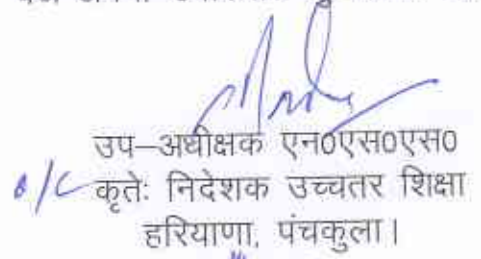 उप–अधीक्षक एन0एस0एस0
कृतेः निदेशक उच्चतर शिक्षा
हरियाणा, पंचकुला।